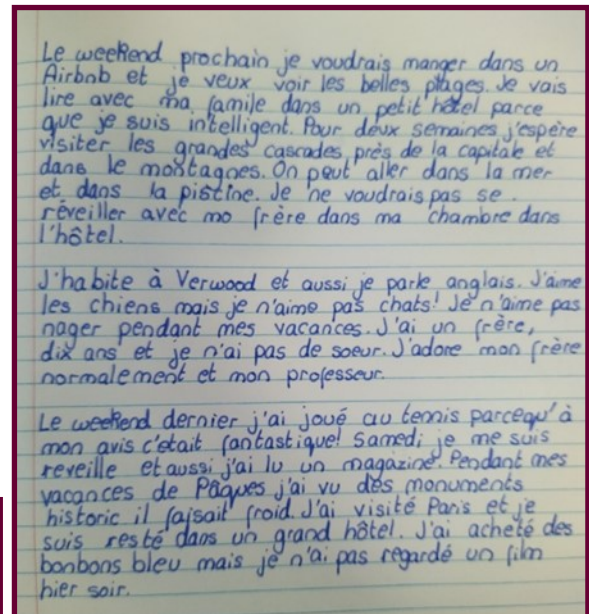 Le weekend prochain je voudrais manger dans un
Airbnb et je veux voir les belles plages. Je vais
lire avec ma famile dans un petit hôtel parce
que je suis intelligent. Pour deux semaines j'espère
visiter les grandes cascades près de la capitale et
dans le montagnes. On peut aller dans la mer
et dans la pistine. Je ne voudrais pas se
réveiller avec mo frère dans ma chambre dans
l'hôtel.
J'habite à Verwood et aussi je parle anglais. J'aime
les chiens mais je n'aime pas chats! Je n'aime pas
nager pendant mes vacances. J'ai un frère,
dix ans et je n'ai pas de soeur. J'adore mon frère
normalement et mon professeur.
Le weekend dernier j'ai joué au tennis parcequ'à
mon avis c'etait fantastique! Samedi je me suis
reveille et aussi j'ai lu un magazine. Pendant mes
vacances de Pâques j'ai vu des monuments
historic il faisait froid. J'ai visité Paris et je
suis resté dans un grand hôtel. J'ai acheté des
bonbons bleu mais je n'ai pas regardé un film
hier soir.